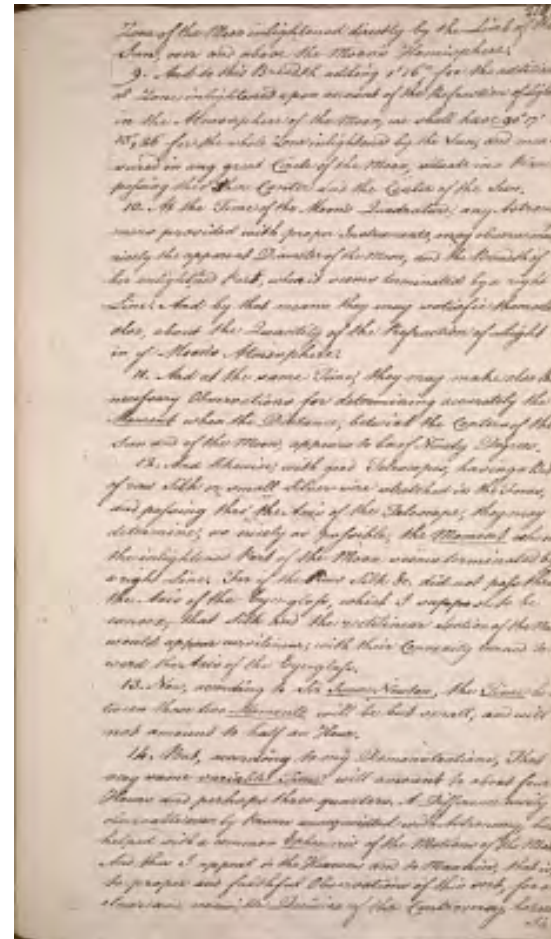 Zone of the Moon inlightened directly by the Limb of the
Sun, over and above the Moon's Hemisphere.
9. And to this Breadth adding 1' 16" for the addition
al Zone, inlightened upon account of the Refraction of Light
in the Atmosphere of the Moon, we shall have
for the whole Zone inlightened by the Sun, and mea
sured in any great Circle of the Moon, situate in a Plane
passing thro' her Center and the Center of the Sun.
10. At the Time of the Moon's Quadrature, any Astrono
mers provided with proper Instruments, may observe
nicely the apparent Diameter of the Moon, and the Breadth of
her enlightned Part, when it seems terminated by a right
Line: And by that means they may satisfie themsel
ves, about the Quantity of the Refraction of Light
in ye Moon's Atmosphere.
11. And at the same Time, they may make also the
necessary Observations for determining accurately the
Moment when the Distance, betwixt the Centers of the
Sun and of the Moon, appears to be of Ninety Degrees.
12. And likewise, with good Telescopes, having a
of raw Silk or small Silver wire stretched in the Focus,
and passing thro' the Axis of the Telescope, they may
determine, as nicely as possible, the Moment when
the inlightened Part of the Moon seems terminated by
a right Line. For if the Raw Silk &c. did not pass thro'
the Axis of the Eye-glass, which I suppose to be
convex, that Silk and the rectilinear Section of the Moon
would appear curvilinear, with their Convexity turned to
ward the Axis of the Eye-glass.
13. Now, according to Sr. Isaac Newton, the Time be
tween those two Moments will be but small, and will
not amount to half an Hour.
14. But, according to my Demonstrations, That
very same variable Time will amount to about four
Hours and perhaps three quarters. A Difference easily
observable even by Persons unacquainted with Astronomy, but
helped with a common Ephemeris of the Motions of the Moon.
And thus I appeal to the Heavens and to Mankind, that is,
to proper and faithful Observations of this sort, for a
clear and Decision of the Controversy